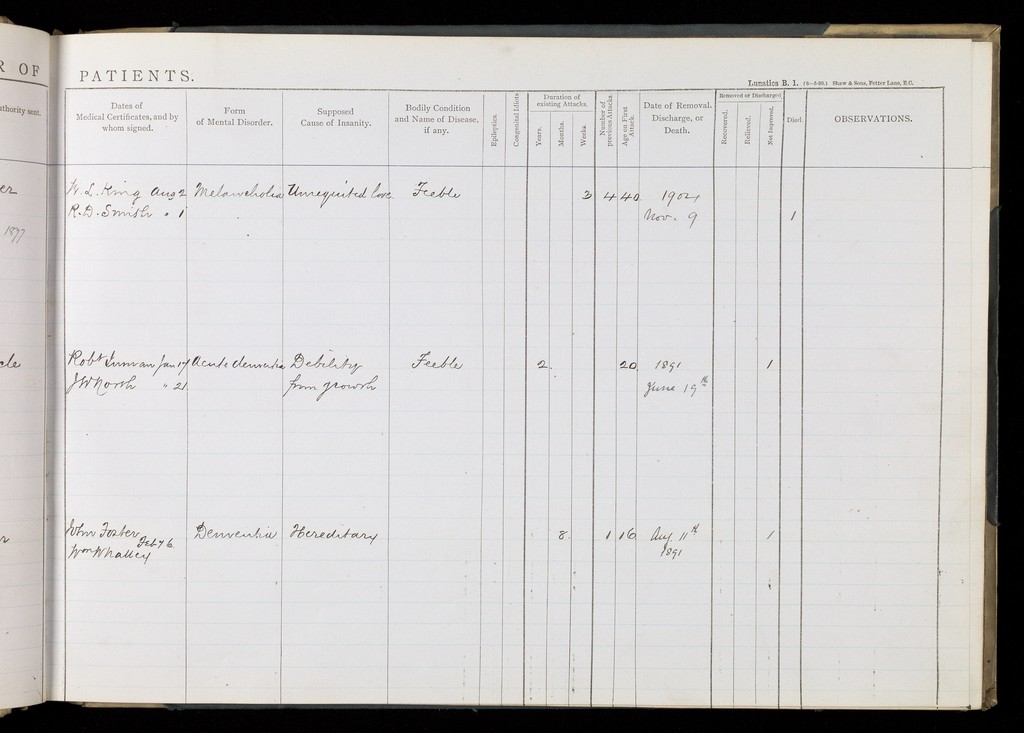 R OF
PATIENTS.
Lunatics B. 1. Shaw & Sons, Fetter Lane, E.C.
uthority sent.
Dates of
Medical Certificates, and by
whom signed.
Form
of Mental Disorder.
Supposed
Cause of Insanity.
Bodily Condition
and Name of Disease,
if any.
Epileptics.
Congenital Idiots
Duration of
existing Attacks.
Years.
Months.
Weeks.
Number of
previous Attacks.
Age on First
Attack.
Date of Removal.
Discharge, or
Death.
Removed or Discharged
Recovered.
Relieved.
Not Improvd.
Died.
OBSERVATIONS.
er
W. L. King Aug 2 Melancholia Unrequited love Feeble 3 4 40 1904
R. D. Smith " 1 Nov. 9 1
1877
cle
Robt Inman Jan 17 Acute dementia Debility Feeble 2. 20 1891 1
J W North " 21 from growth June 19th
John Foster Feb 7 6 Dementia Hereditary 8. 1 16 Aug 11th 1
Wm Whalley 1891